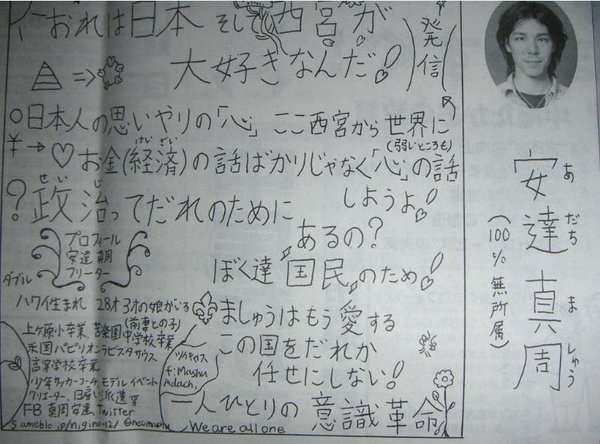 おれは日本 そし 西宮が
大好きなんだ!
発信
日本人の思いやりの「心」ここ西宮から世界に
(弱いところも)
¥→♡お金(経済)の話ばかりじゃなく「心」の話
けいざい
しようよ!
?政治ってだれのために
せいじ
あるの?
ぼく達国民のため!
プロフィール
安達 真周
フリーター
ダブル
ハワイ生まれ 28才 3才の娘がいる
(前妻との子)
上ヶ原小卒業 苦楽園中学校卒業
米国パピリオンラビスタサウス
高等学校卒業
少年サッカーコーチ モデル イベント
クリエーター、日雇い派遣 等
FB 真周安達 Twitter
ツイキャス
f:Mashu
Adachi.
ましゅうはもう愛する
この国をだれか
任せにしない!
一人ひとりの意識革命
We are all one
安達真周
あだち ましゅう
(100% 無所属)